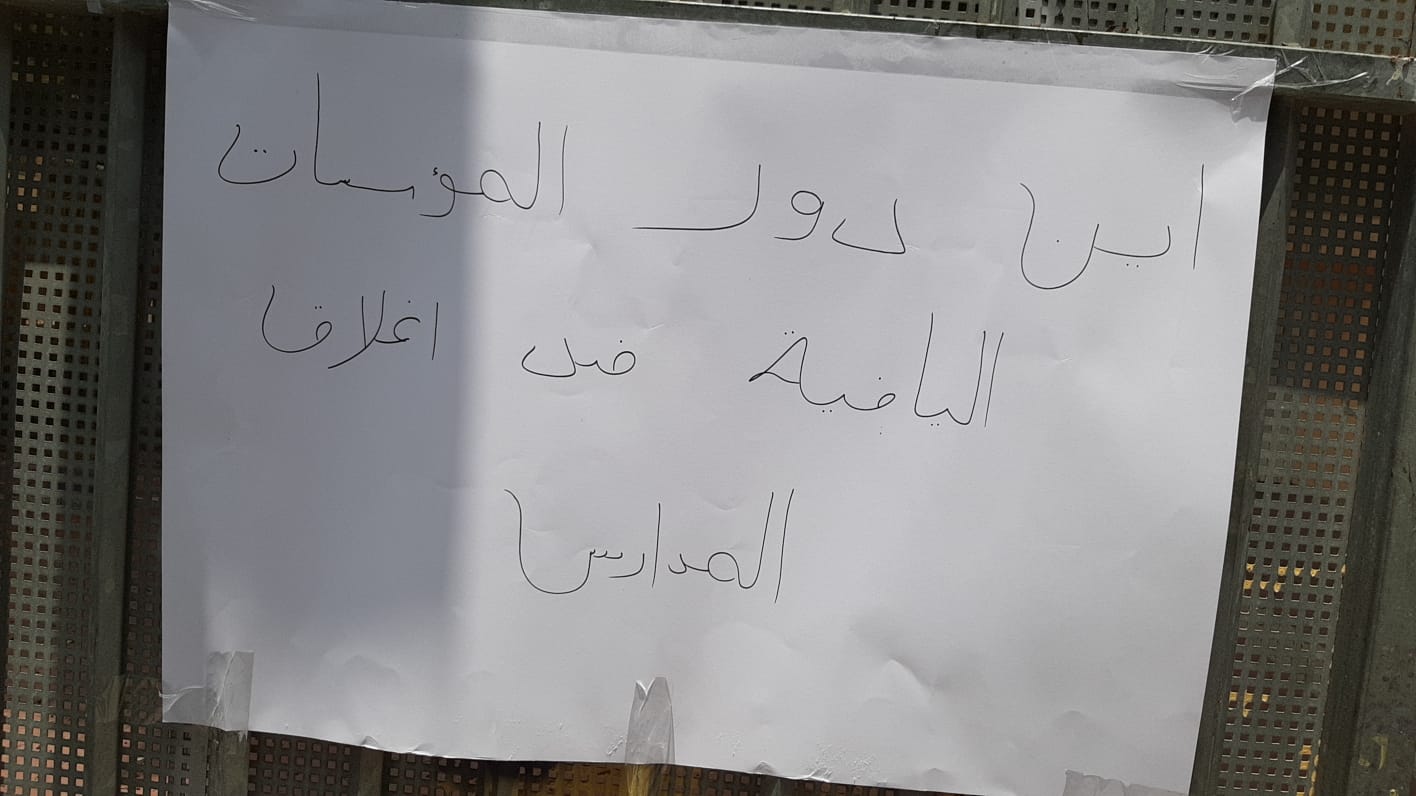 اين دور المؤسسات
اليافية ضد اغلاق
المدارس